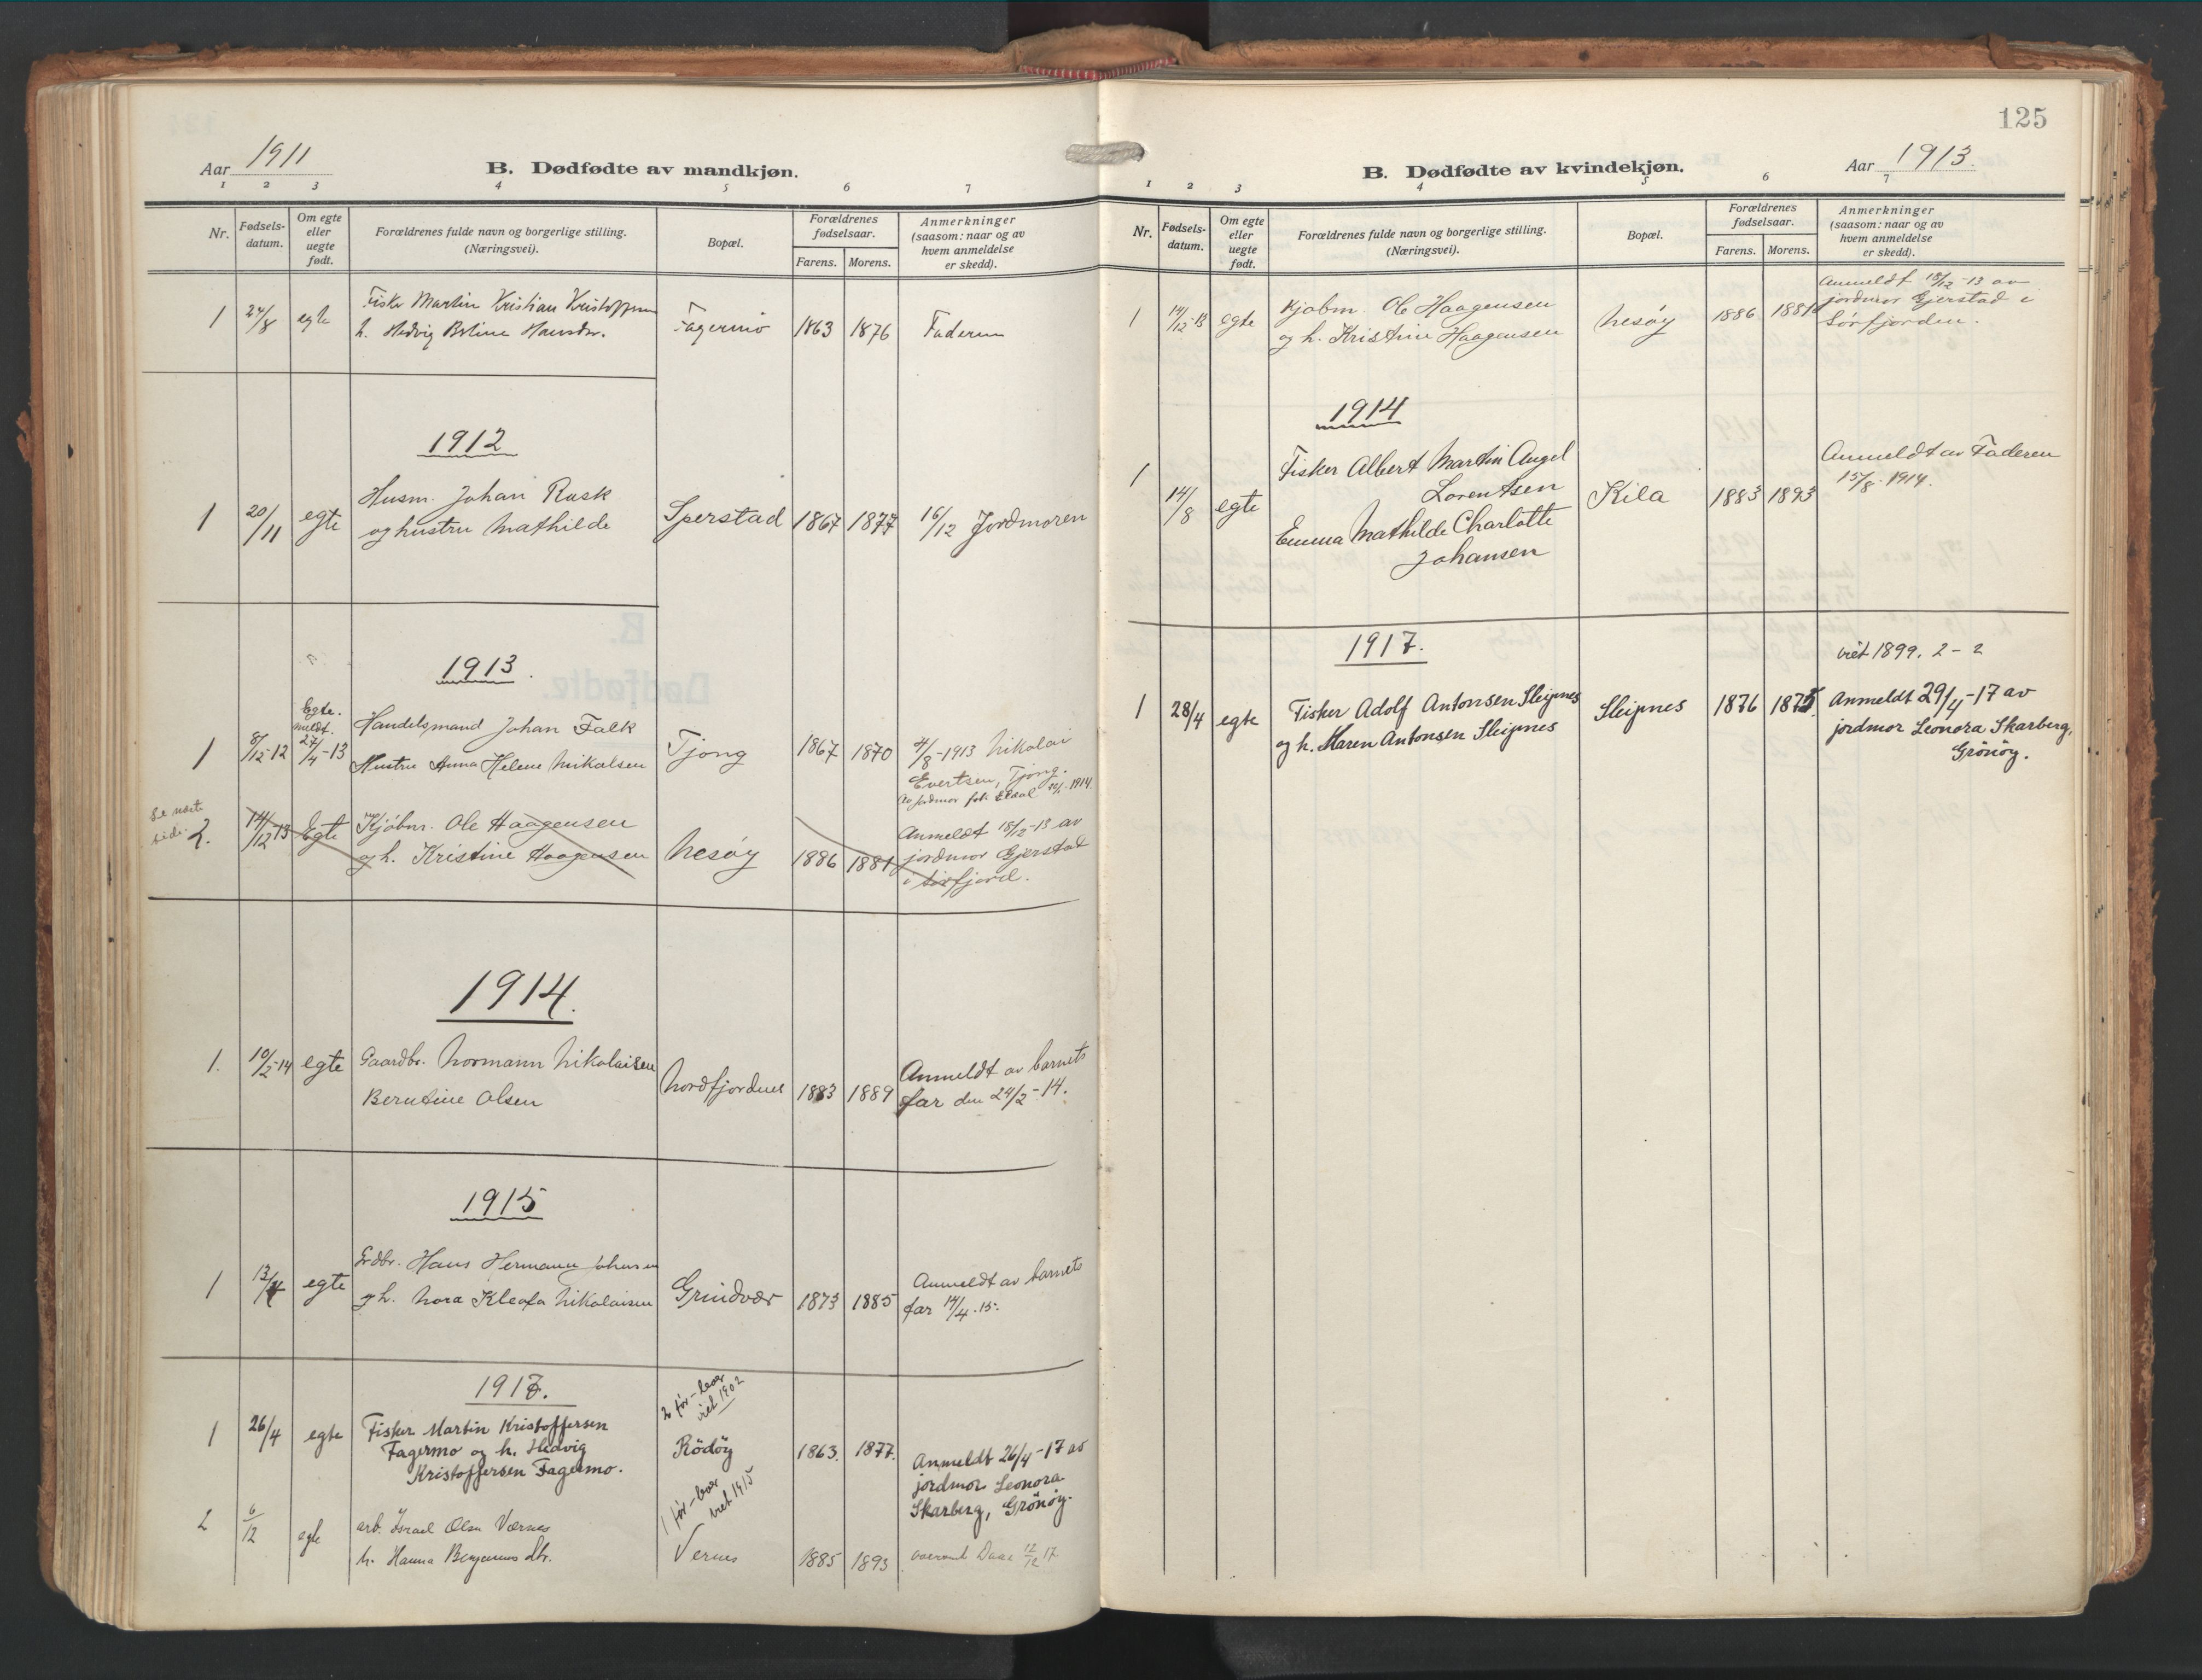 Aar 1911
B. Dødfødte av mandkjøn.
1 2 3 4 5 6 7
Nr. Fødsels-datum. Om egte eller uegte født. Forældrenes fulde navn og borgerlige stilling. (Næringsvei). Bopæl. Forældrenes fødselsaar. Farens. Morens. Anmerkninger (saasom: naar og av hvem anmeldelse er skedd).
1 24/8 egte Fisker Martin Kristian Kristoffersen Fagermo 1863 1876 Faderen
h. Hedvig
1912
1 20/11 egte Husm. Johan Rask Sperstad 1867 1877 16/12 Jordmoren
og hustru Mathilde
1913.
1 8/12-12 Egte. meldt. 27/4-13 Handelsmand Johan Falk Tjong 1867 1870 4/8-1913 Nikolai
Hustru Anna Helene Nikolsen Evertsen, Tjong.
Av jordmor 1914
Se næste side. 2. 14/12 13 Egte Kjøbm. Ole Haagensen Nesøy 1886 1881 Anmeldt 18/12-13 av
og h. Kristine Haagensen jordmor Gjerstad
i Sørfjord.
1914.
1. 10/2-14 egte Gaardbr. Normann Nikolaisen Nordfjordnes 1883 1889 Anmeldt av barnets
Berntine Olsen far den 24/2-14.
1915
1 13/4 egte Grdbr. Hans Hermann Johnsen Grindvær 1873 1885 Anmeldt av barnets
og h. Nora Kleofa Nikolaisen far 14/4.15.
1917.
2 før-lever
viet 1902
1 26/4 egte Fisker Martin Kristoffersen Rödöy 1863. 1877. Anmeldt 26/4-17 av
Fagermo og h. Hedvig jordmor Leonora
Kristoffersen Fagermo. Skarberg, Grönöy.
1 før-lever
viet 1915
2 6/12 egte arb. Israel Olsen Værnes Vernes 1885 1893 12/12 17
h. Hanna
125
B. Dødfødte av kvindekjøn.
Aar 1913.
1 2 3 4 5 6 7
Nr. Fødsels-datum. Om egte eller uegte født. Forældrenes fulde navn og borgerlige stilling. (Næringsvei). Bopæl. Forældrenes fødselsaar. Farens. Morens. Anmerkninger (saasom: naar og av hvem anmeldelse er skedd).
1 14/12-13 egte Kjøbm. Ole Haagensen Nesöy 1886 1881 Anmeldt 18/12-13 av
og h. Kristine Haagensen jordmor Gjerstad i
Sörfjorden.
1914
1 14/8 egte Fisker Albert Martin Angel Kila 1883 1893 Anmeldt av Faderen
Lorentsen 15/8. 1914.
Emma Mathilde Charlotte
Johansen
1917.
viet 1899. 2 - 2
1 28/4 egte Fisker Adolf Antonsen Sleipnes Sleipnes 1876 1875 Anmeldt 29/4-17 av
og h. Maren Antonsen Sleipnes jordmor Leonora Skarberg,
Grönöy.